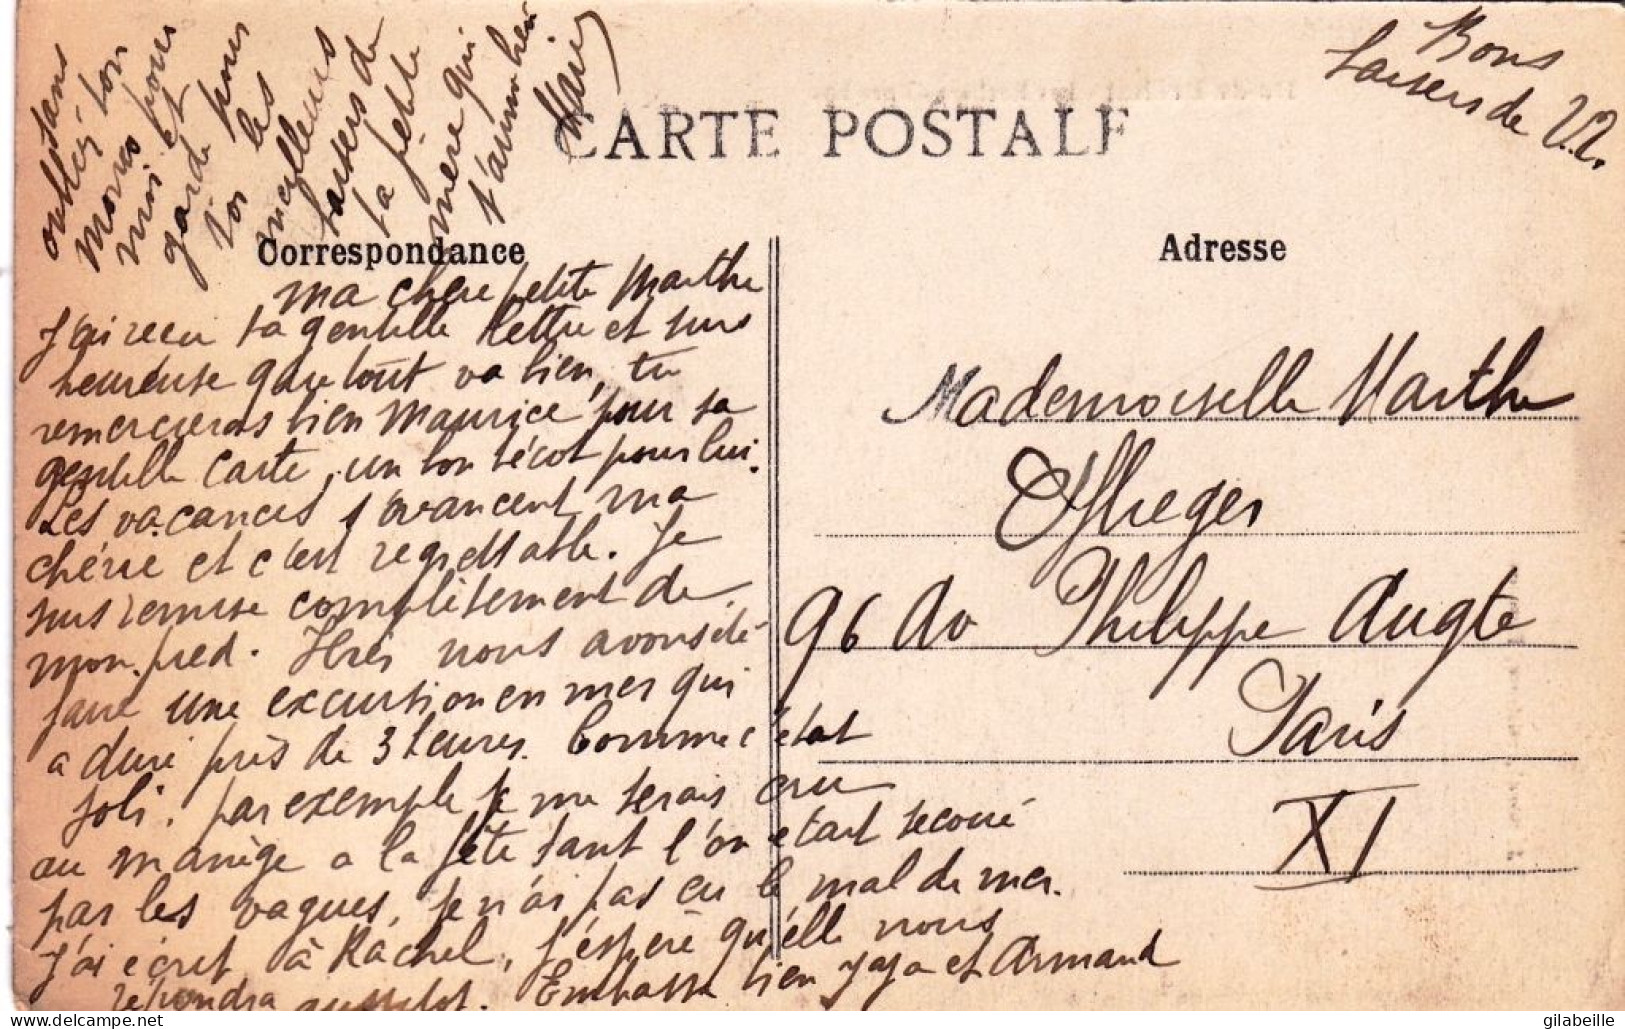 CARTE POSTALE
Correspondance
Adresse
ma chère petite Marthe
J'ai recu ta gentille lettre et suis
heureuse que tout va bien, tu
remercieras bien Maurice pour sa
gentille carte, un bon bécot pour lui.
Les vacances s'avancent ma
chérie et c'est regrettable. Je
suis remise complètement de
mon pied. Hier nous avons été
faire une excursion en mer qui
a duré près de 3 heures. Comme c'était
joli, par exemple je me serais cru
au manège a la fête tant l'on était secoué
par les vagues, je n'ai pas eu le mal de mer.
J'ai écrit à Rachel, j'espère qu'elle nous
répondra aussitot. Embrasse bien Jaja et Armand
sans
oublier ton
pour
moi et
garde pour
toi les
meilleurs
baisers de
ta petite
mère qui
t'aime bien.
Bons
baisers de V.V.
Mademoiselle Marthe
96 Av Philippe Augte
Paris
XI
gilabeille